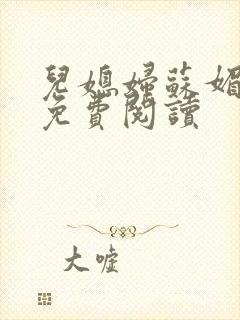 兒媳婦蘇媚
免費閱讀
大嘘